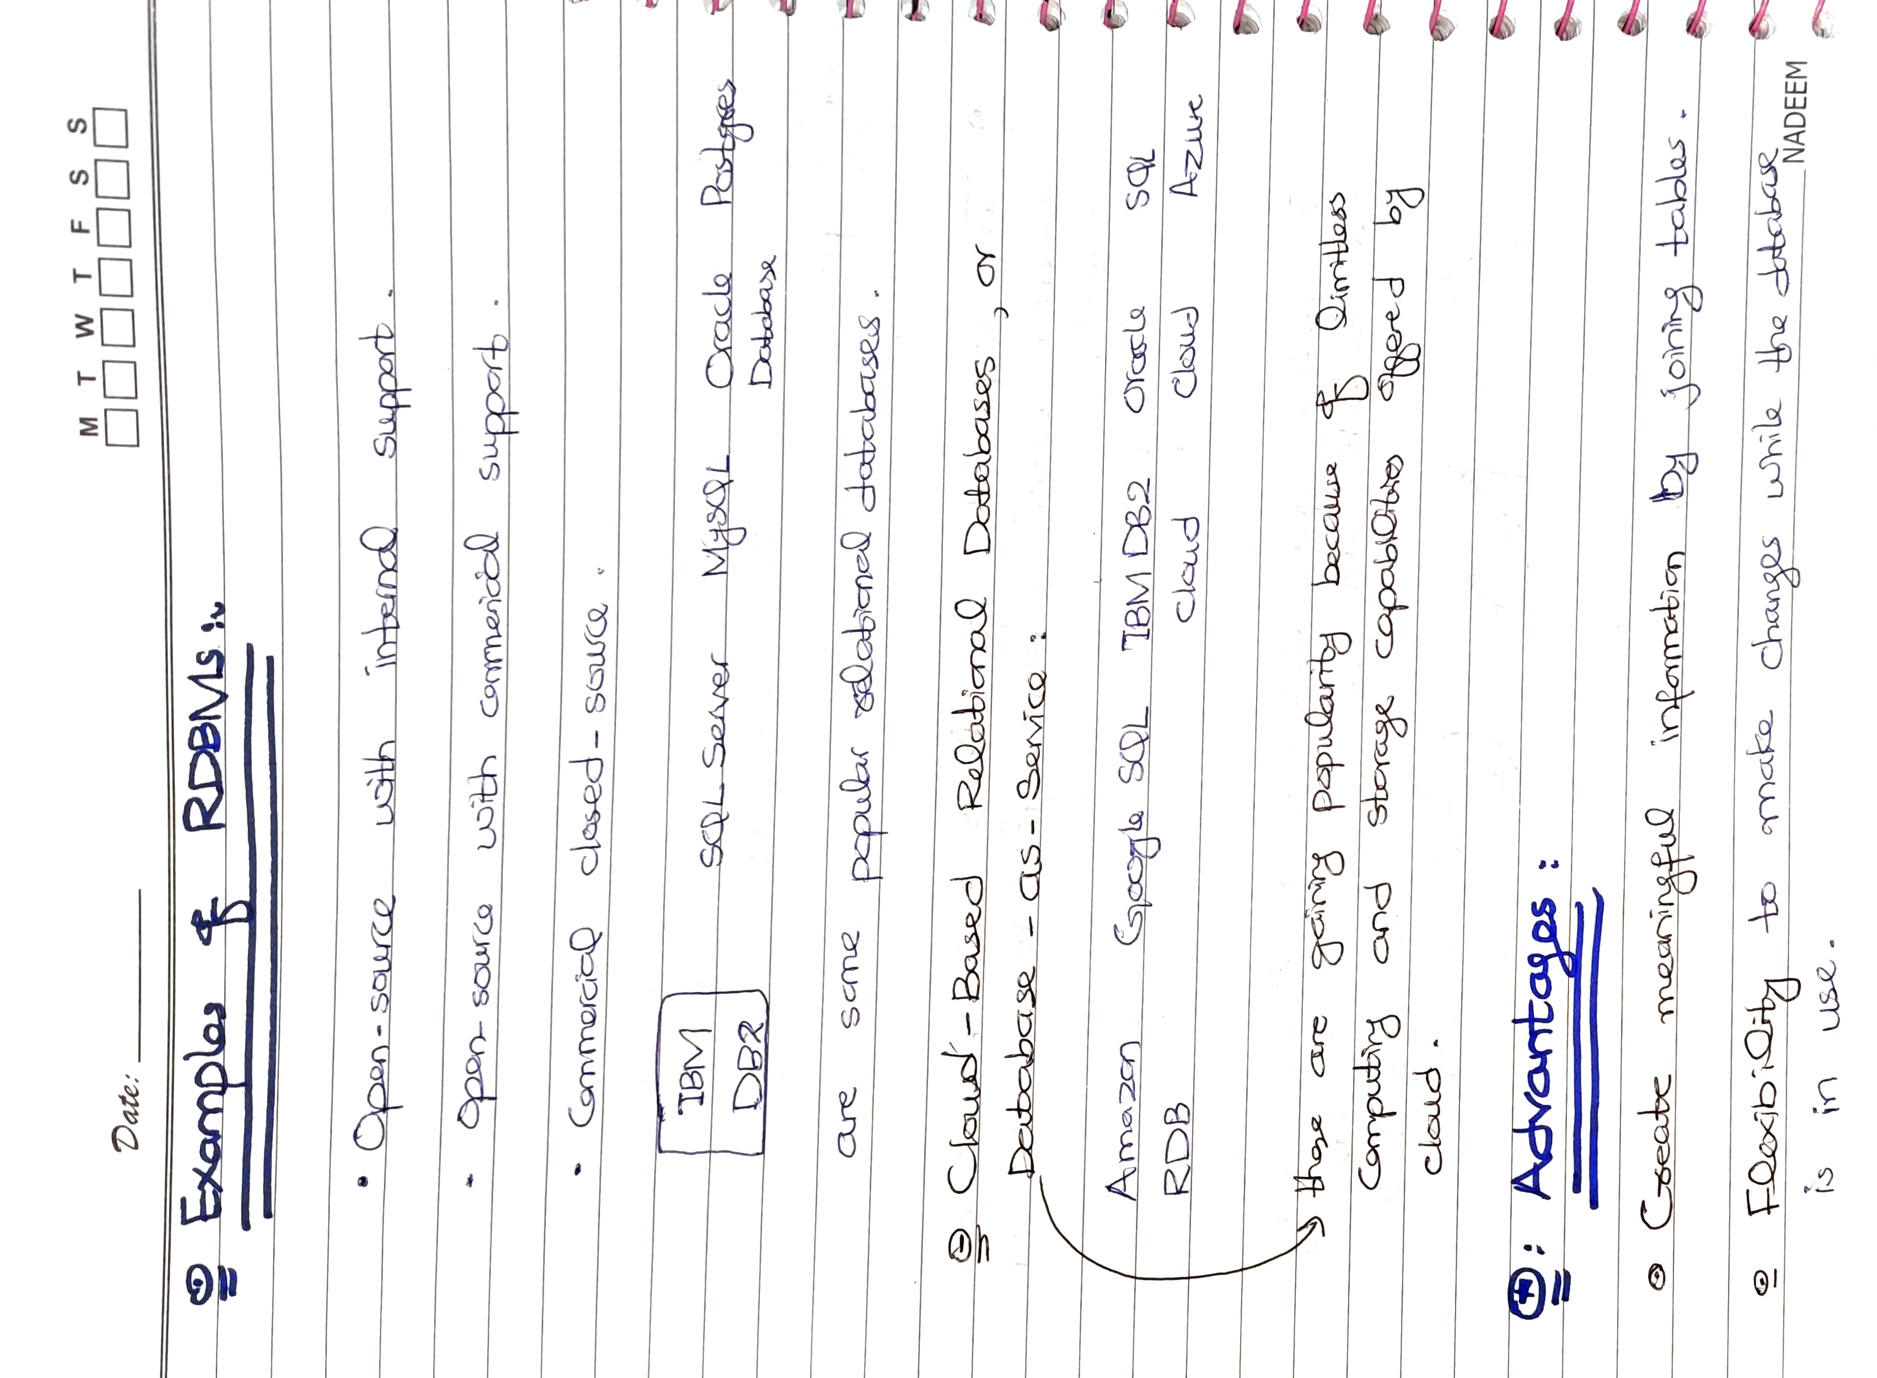 Date:
M T W T F S S
Examples of RDBMs:
• Open-source with internal support.
• Open-source with commericial support.
• Commercial closed-source.
IBM SQL Server MySQL Oracle Postgres
DB2 Database
are some popular relational databases.
Cloud-Based Relational Databases, or
Database-as-Service:
Amazon Google SQL IBM DB2 Oracle SQL
RDB cloud cloud Azure
those are gaining popularity because of limitless
Computing and storage capabilities offered by
cloud.
Advantages:
Create meaningful information by joining tables.
Flexibility to make changes while the database
is in use.
NADEEM